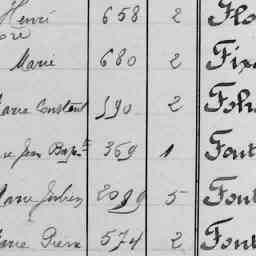 Henri 658 2 Flo
Marie 680 2 Fix
Marie Constant 590 2 Foh
Jean Bapte 369 1 Font
Marie 2099 5 Font
Marie Pierre 574 2 Font